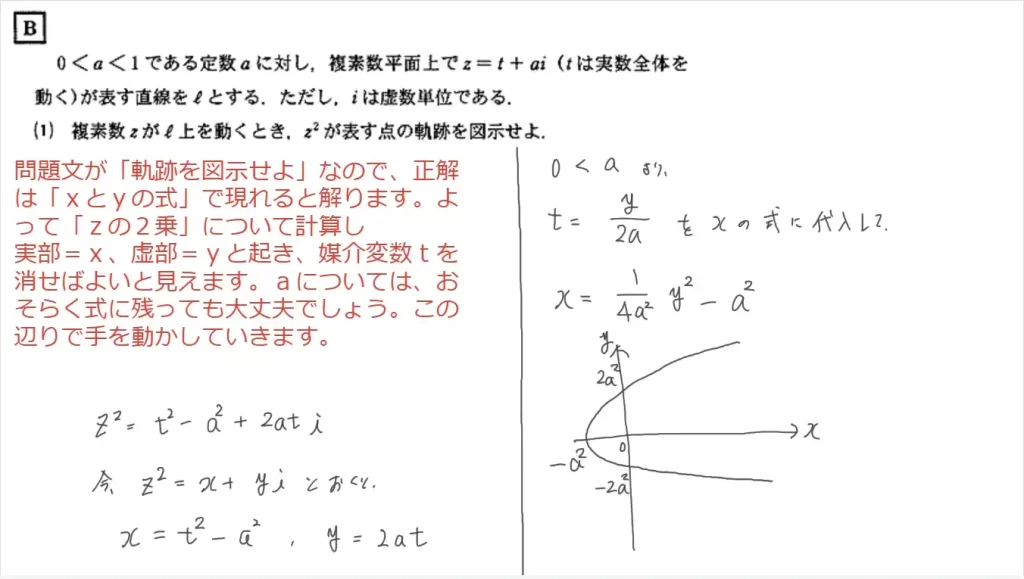 B
0<a<1である定数aに対し，複素数平面上でz=t+ai（tは実数全体を
動く）が表す直線をℓとする．ただし，iは虚数単位である．
(1) 複素数zがℓ上を動くとき，z²が表す点の軌跡を図示せよ．
問題文が「軌跡を図示せよ」なので、正解
は「ｘとｙの式」で現れると解ります。よ
って「ｚの２乗」について計算し
実部＝ｘ、虚部＝ｙと起き、媒介変数ｔを
消せばよいと見えます。ａについては、お
そらく式に残っても大丈夫でしょう。この
辺りで手を動かしていきます。
z² = t² - a² + 2at i
今 z² = x + yi とおくと、
x = t² - a² , y = 2at
0 < a より、
t = y/2a を x の式に代入して、
x = 1/4a² y² - a²
y
2a²
x
0
-a²
-2a²